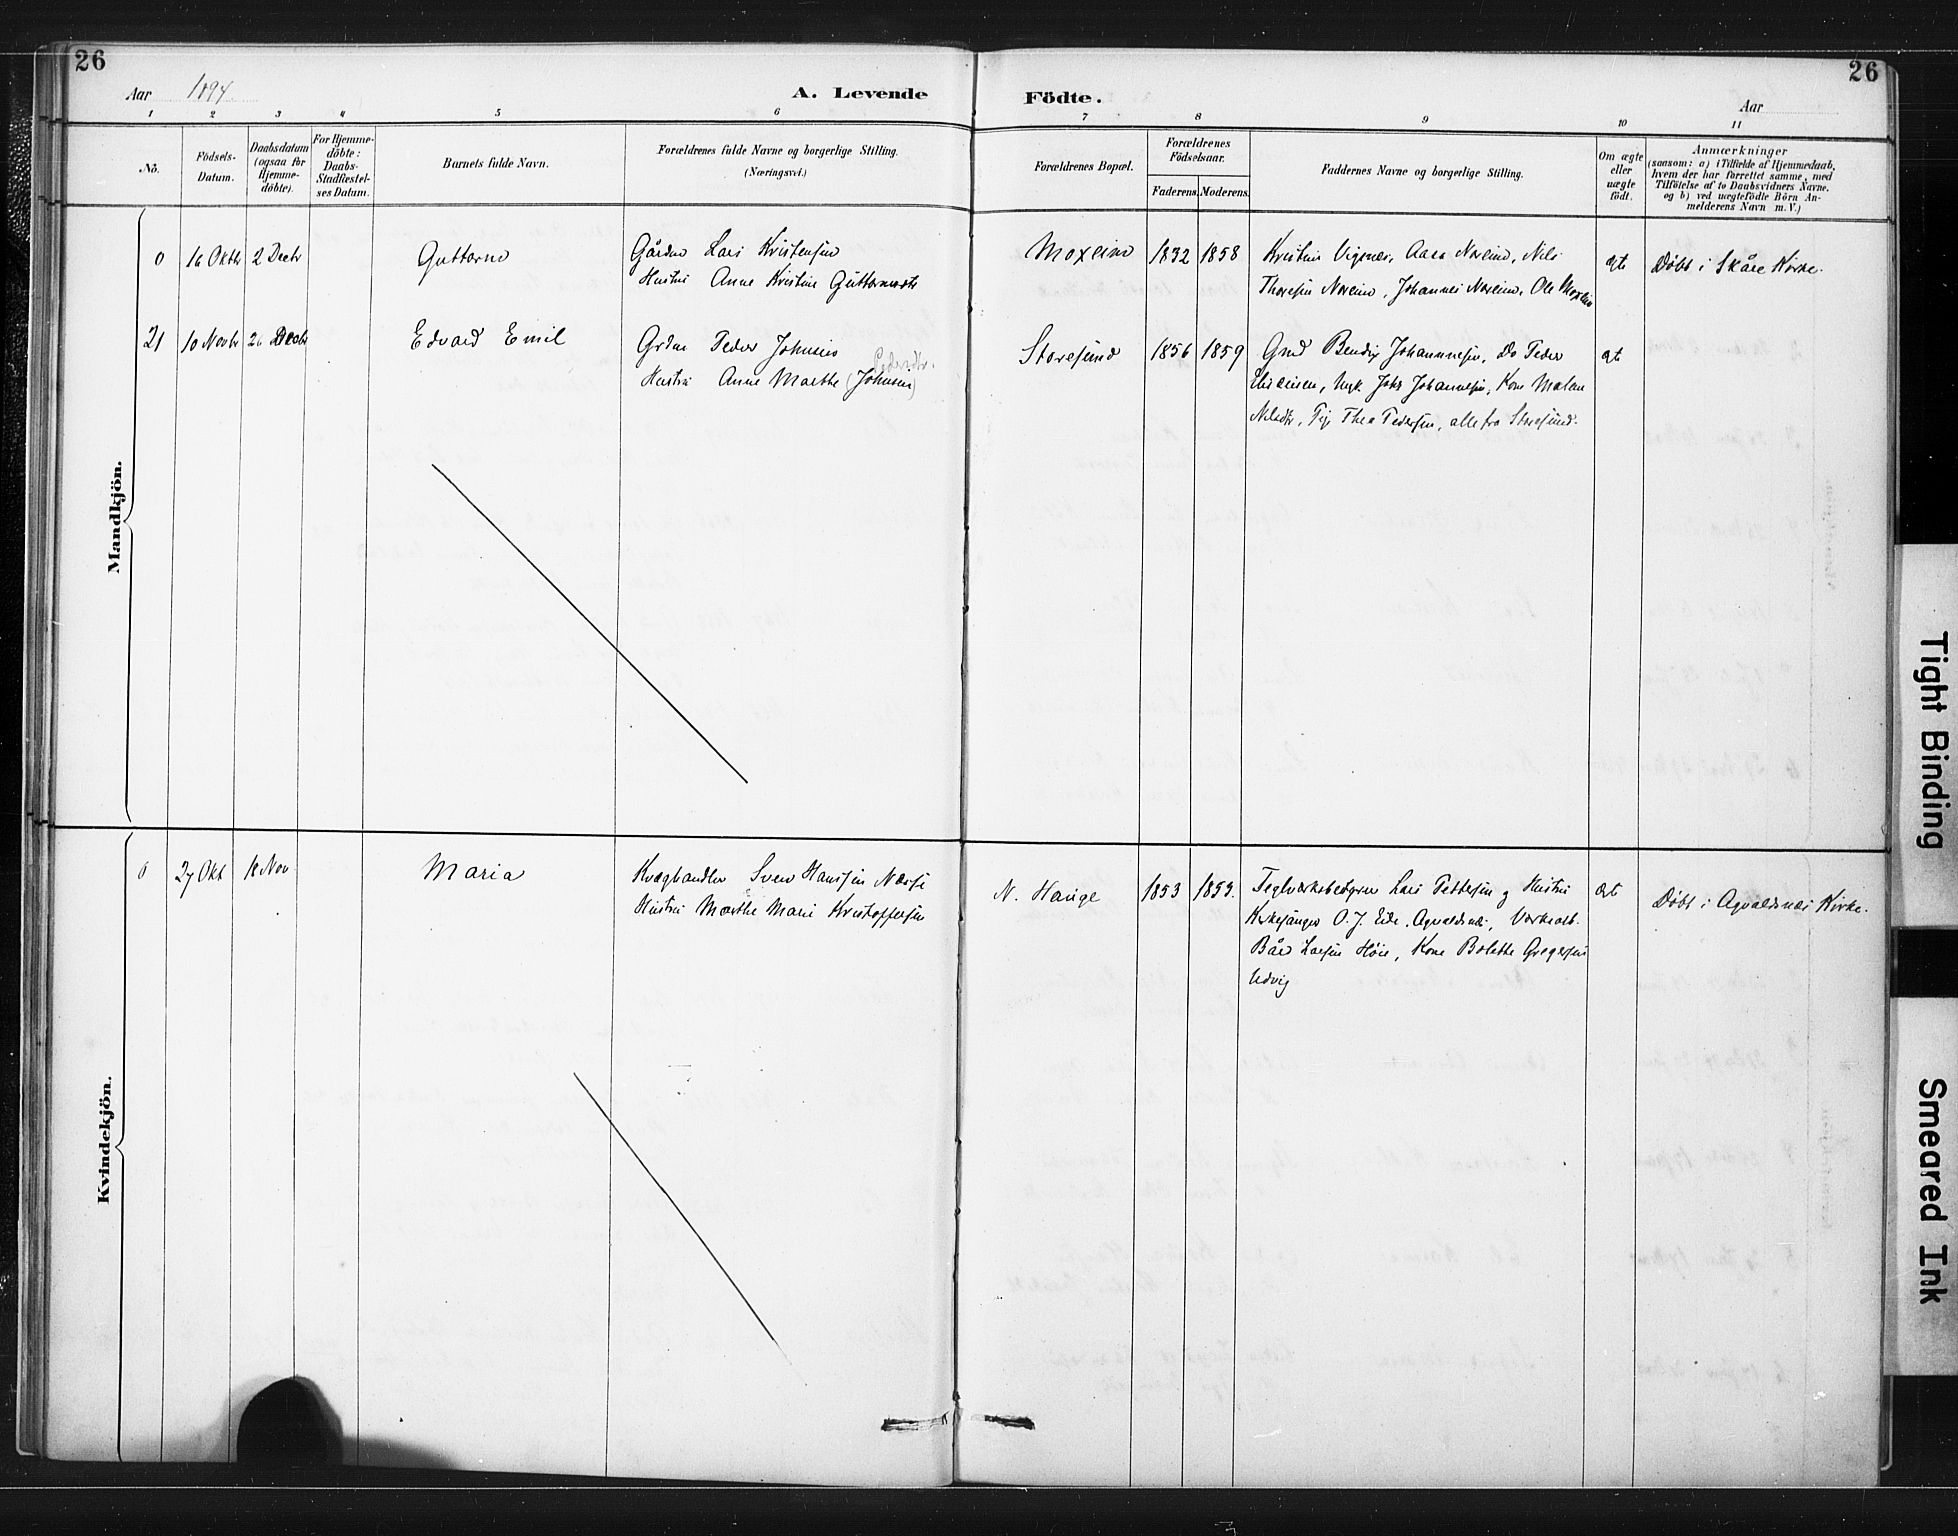 26
26
Aar 1894.
A. Levende
Födte.
Aar
1 2 3 4 5 6 7 8 9 10 11
No.
Födsels-
Datum.
Daabsdatum
(ogsaa for
Hjemme-
döbte).
For Hjemme-
döbte:
Daabs-
Stadfæstel-
ses Datum.
Barnets fulde Navn.
Forældrenes fulde Navne og borgerlige Stilling.
(Næringsvei.)
Forældrenes Bopæl.
Forældrenes
Födselsaar.
Faderens. Moderens.
Faddernes Navne og borgerlige Stilling.
Om ægte
eller
uægte
födt.
Anmærkninger
(saasom: a) i Tilfælde af Hjemmedaab,
hvem der har forrettet samme, med
Tilföielse af to Daabsvidners Navne.
og b) ved uægtefödte Börn An-
melderens Navn m. V.)
Mandkjön.
0 16 Oktbr 2 Decbr Guttorm
Gårdm Lars Kristensen
Hustru Anne Kristine Guttormsdtr
Moxeim 1832 1858
Kristine Vignes, Aasa Noreim, Nils
Thoresen Noreim, Johannes Noreim, Ole Moxeim
ægte
Döbt i Skåre Kirke.
21 10 Novbr 26 Decbr Edvard Emil
Grdm Peder Johnsen
Pedersdtr.
Hustru Anne Marthe (Johnsen)
Storesund 1856 1859
Gmd Bendix Johannesen, Do Peder
, Ungk. Johs Johannesen, Kone Malene
Nilsdtr, Pige Thea Pedersen, alle fra Storesund.
ægt
Kvindekjön.
27 Okt 18 Nov Maria
Kvæghandler Sven Hanssen Næsse
Hustru Marthe Marie Kristoffersen
N. Hauge 1853 1859.
Teglværksbestyrer Lars Pettersen og Hustru
Kirkesanger O. J. Eide, Agvaldsnæs, Værksarb.
Bård Larsen Höie, Kone Bolette Gregersen
Udvig
ægt
Döbt i Agvaldsnæs Kirke.
Tight Binding
Smeared Ink